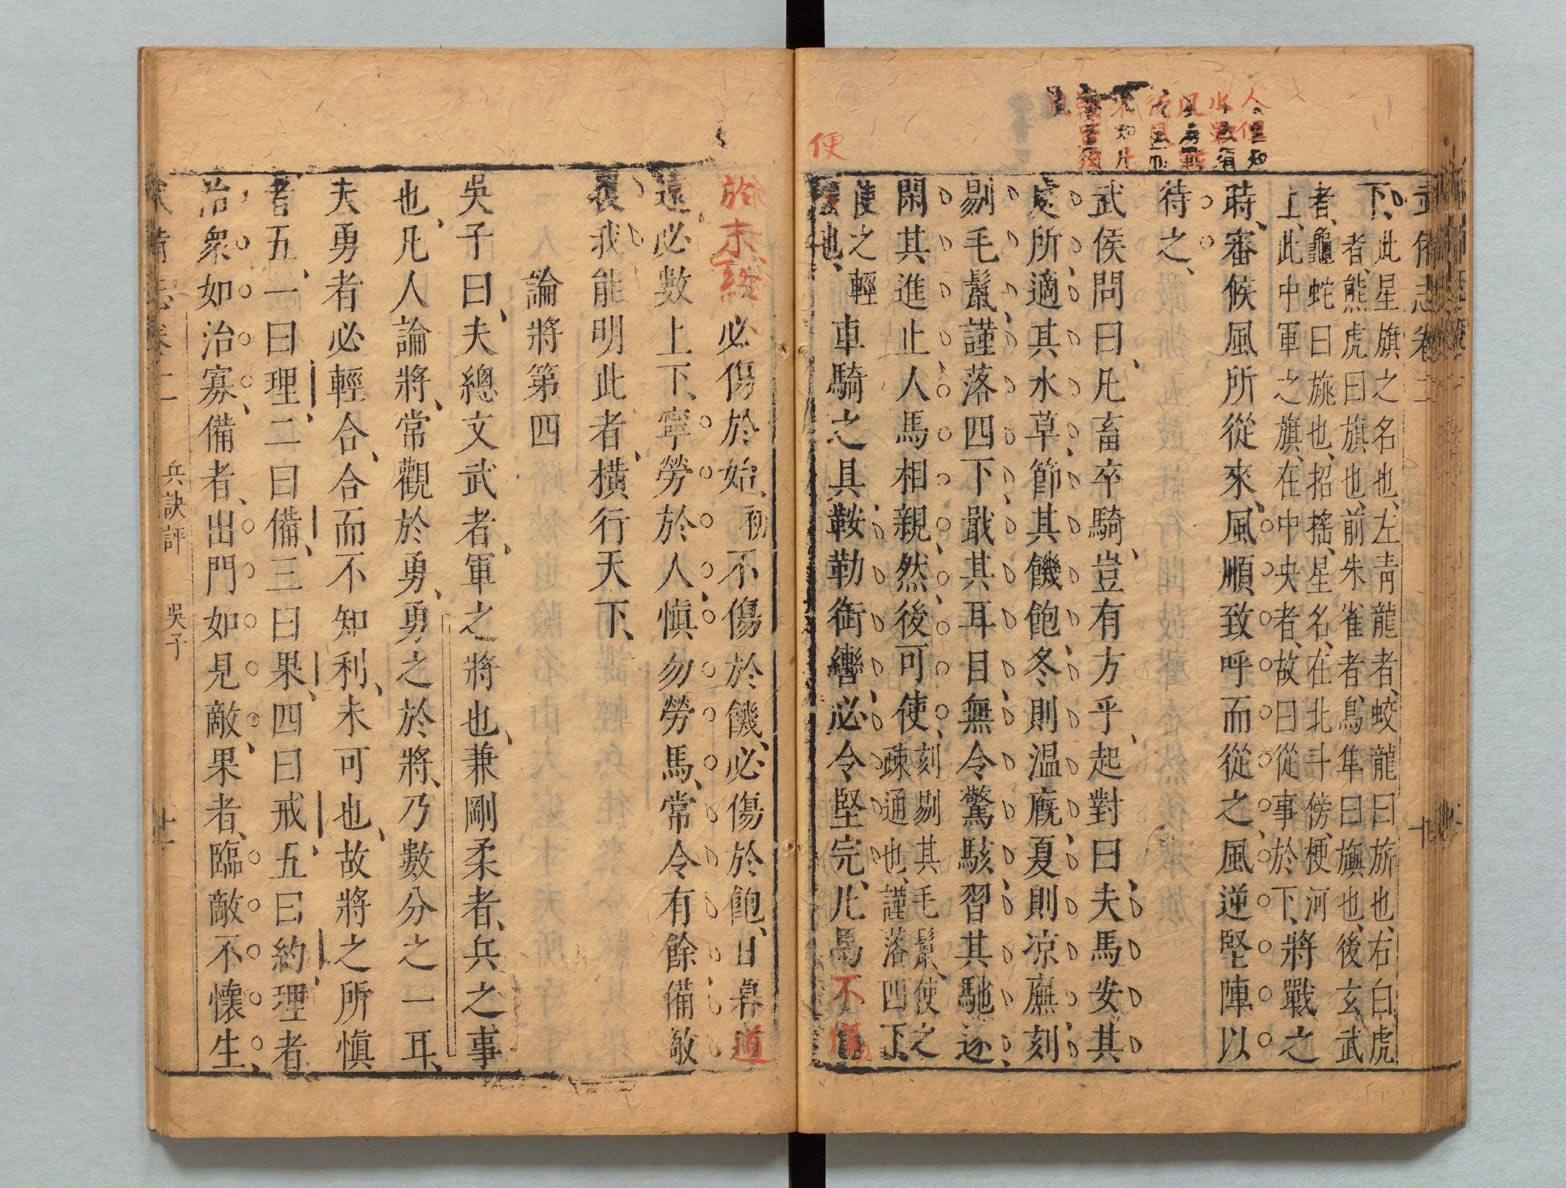 武備志卷二
下、此星旗之名也、左青龍者、蛟龍曰旂也、右白虎
者、熊虎曰旗也、前朱雀者、鳥隼曰旟也、後玄武
者、龜蛇曰旐也、招搖、星名、在北斗傍、梗河
上、此中軍之旗、在中央者、故曰從事於下、將戰之
時、審候風所從來、風順致呼而從之、風逆堅陣以
待之、
武侯問曰、凡畜卒騎、豈有方乎、起對曰、夫馬安其
處所、適其水草、節其饑飽、冬則温廐、夏則凉廡、刻
剔毛鬣、謹落四下、戢其耳目、無令驚駭、習其馳逐、
閑其進止、人馬相親、然後可使、刻剔其毛鬣、使之
疎通也、謹落四下、
使之輕
便也、車騎之具、鞍勒銜轡、必令堅完、凡馬不傷
便
於末、必傷於始、不傷於饑、必傷於飽、日暮道
遠、必數上下、寧勞於人、慎勿勞馬、常令有餘、備敵
覆我、能明此者、橫行天下、
論將第四
吳子曰、夫總文武者、軍之將也、兼剛柔者、兵之事
也、凡人論將、常觀於勇、勇之於將、乃數分之一耳、
夫勇者必輕合、合而不知利、未可也、故將之所慎
者五、一曰理、二曰備、三曰果、四曰戒、五曰約、理者、
治衆如治寡、備者、出門如見敵、果者、臨敵不懷生、
武備志卷二 兵訣評 吳子